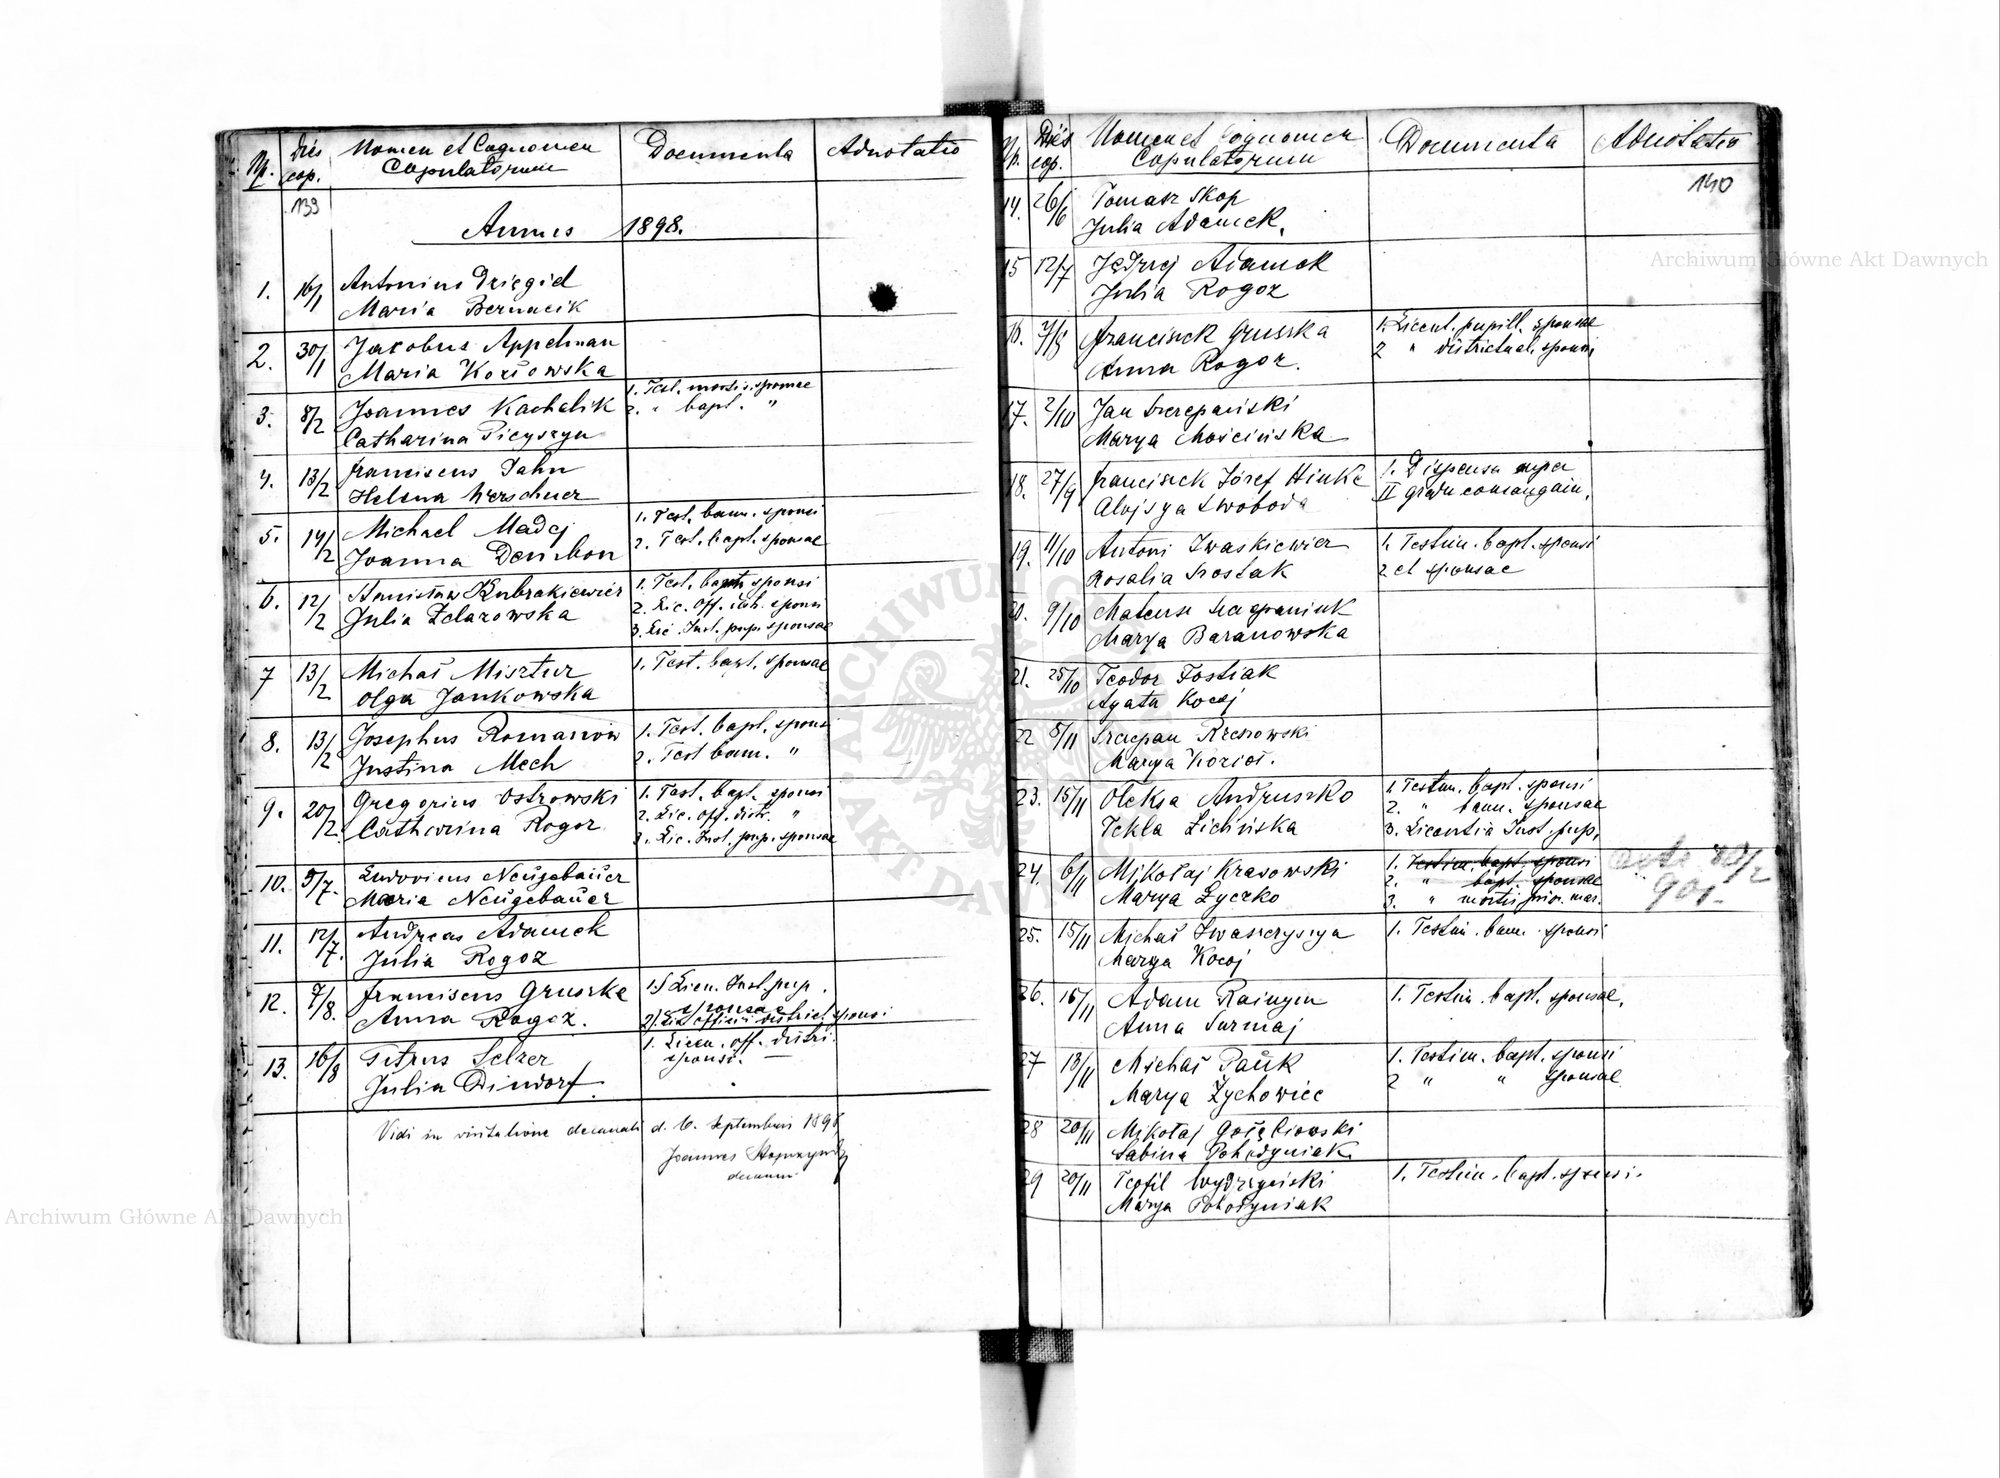 Np. Dies cop. Nomen et Cognomen Copulatorum Documenta Adnotatio
139
Annus 1898.
1. 16/1 Antonius Dzięgiel
Maria Bernacik
2. 30/1 Jakobus Appelman
Maria Kozłowska
3. 8/2 Joannes Kachelik 1. Test. mortis. sponsae
Catharina Picyszyn 2. " bapt. "
4. 13/2 Franciscus Jahn
Helena Kerschner
5. 14/2 Michael Madej 1. Test. bann. sponsi
Joanna Dembon 2. Test. bapt. sponsae
6. 12/2 Stanisław Kubrakiewicz 1. Test. bapt. sponsi
Julia Żelazowska 2. Lic. off. distr. sponsi
3. Lic. Inst. pup. sponsae
7 13/2 Michał Misztur 1. Test. bapt. sponsae
Olga Jankowska
8. 13/2 Josephus Romanów 1. Test. bapt. sponsi
Justina Mech 2. Test bann. "
9. 20/2 Gregorius Ostrowski 1. Test. bapt. sponsi
Catharina Rogoz 2. Lic. off. distr. "
3. Lic. Inst. pup. sponsae
10. 5/7. Ludovicus Neügebaüer
Maria Neügebaüer
11. 12/7. Andreas Adamek
Julia Rogoz
12. 7/8. Franciscus Gruszka 1.) Licen. Inst. pup.
sponsae
Anna Rogoz. 2). Lic officii district. sponsi
13. 16/8 Petrus Selzer 1. Licen. off. distri.
sponsi. —
Julia Dindorf.
Vidi in visitatione decanali d. 6. Septembris 1898
Joannes
decanus
Np. Dies cop. Nomen et Cognomen Copulatorum Documenta Adnotatio
140
14. 26/6 Tomasz Skop
Julia Adamek.
15 12/7 Jędrzej Adamek
Julia Rogoz
16. 7/8 Franciszek Gruszka 1. Licent. pupill. sponsae
Anna Rogoz. 2 " districtual. sponsi
17. 2/10 Jan Szczepański
Marya Mościńska
18. 27/9 Franciszek Józef Hinke 1. Dispensa super
Alojzya Swoboda II gradu consanguin.
19. 11/10 Antoni Iwaskiewicz 1. Testim. bapt. sponsi
Rosalia Szostak 2 et sponsae
20. 9/10 Mateusz
Marya Baranowska
21. 25/10 Teodor Fostiak
Agata Kocój
22 5/11 Szczepan Rzeszowski
Marya Kozioł.
23. 15/11 Oleksa Andruszko 1. Testim. bapt. sponsi
2. " bann. sponsae
Tekla Zielińska 3. Licentia Inst. pup.
24. 6/11 Mikołaj Krasowski 1. Testim. bapt. sponsi
2. " bapt. sponsae
Marya Łyczko 3. " mortis prior. mar.
901.
25. 15/11 Michał Iwaszczyszyn 1. Testim. bann. sponsi
Marya Kocój
26. 15/11 Adam Raingen 1. Testim. bapt. sponsae.
Anna Surmaj
27 13/11 Michał Paük 1. Testim. bapt. sponsi
Marya Żychowicz 2 " " sponsae
28 20/11 Mikołaj Gołębiowski
Sabina Pohodyniak
29 20/11 Teofil Wydrzyński 1. Testim. bapt. sponsi.
Marya Pohodyniak
Archiwum Główne Akt Dawnych
Archiwum Główne Akt Dawnych
ARCHIWUM GŁÓWNE AKT DAWNYCH